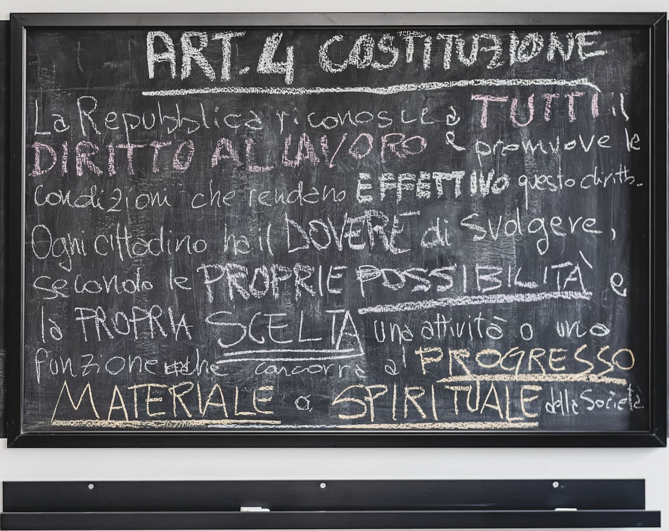 ART. 4 COSTITUZIONE
La Repubblica riconosce a TUTTI il
DIRITTO AL LAVORO e promuove le
condizioni che rendano EFFETTIVO questo diritto.
Ogni cittadino ha il DOVERE di svolgere,
secondo le PROPRIE POSSIBILITÀ e
la PROPRIA SCELTA una attività o una
funzione che concorra al PROGRESSO
MATERIALE o SPIRITUALE della Società